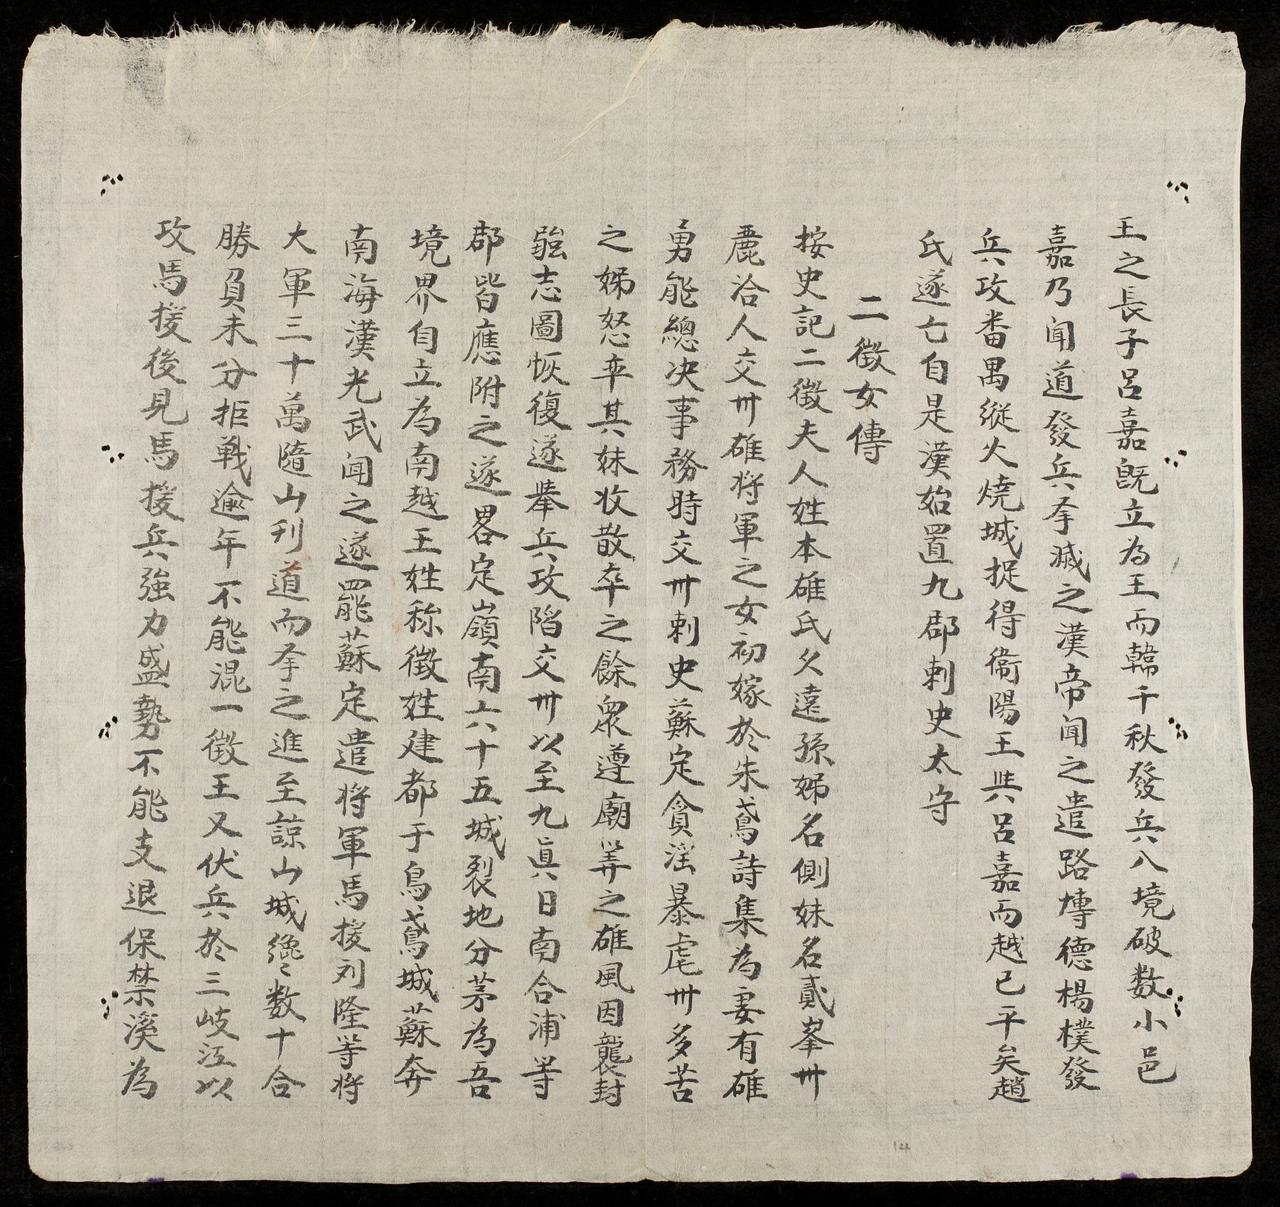 王之長子呂嘉旣立為王而韓千秋發兵八境破数小邑
嘉乃闻道發兵夆滅之漢帝闻之遣路博德楊樸發
兵攻番禺縱火燒城捉得衞陽王共呂嘉而越已平矣趙
氏遂亡自是漢始置九郡刺史太守
二徵女傳
按史記二徵夫人姓本雄氏久遠孫姊名側妹名貳峯卅
麊泠人交卅雄将軍之女初嫁於朱鳶詩集為妻有雄
勇能總决事務時交卅刺史蘇定貪淫暴虐卅多苦
之姊怒率其妹收散卒之餘衆遵廟筭之雄風因襲封
彊志圖恢復遂舉兵攻陷交卅以至九眞日南合浦等
郡皆應附之遂畧定嶺南六十五城裂地分茅為吾
境界自立為南越王姓称徵姓建都于鳥鳶城蘇奔
南海漢光武闻之遂罷蘇定遣将軍馬援刘隆等将
大軍三十萬隨山刋道而夆之進至諒山城纔数十合
勝負未分拒戰逾年不能混一徵王又伏兵於三岐江以
攻馬援後見馬援兵強力盛勢不能支退保禁溪為
14